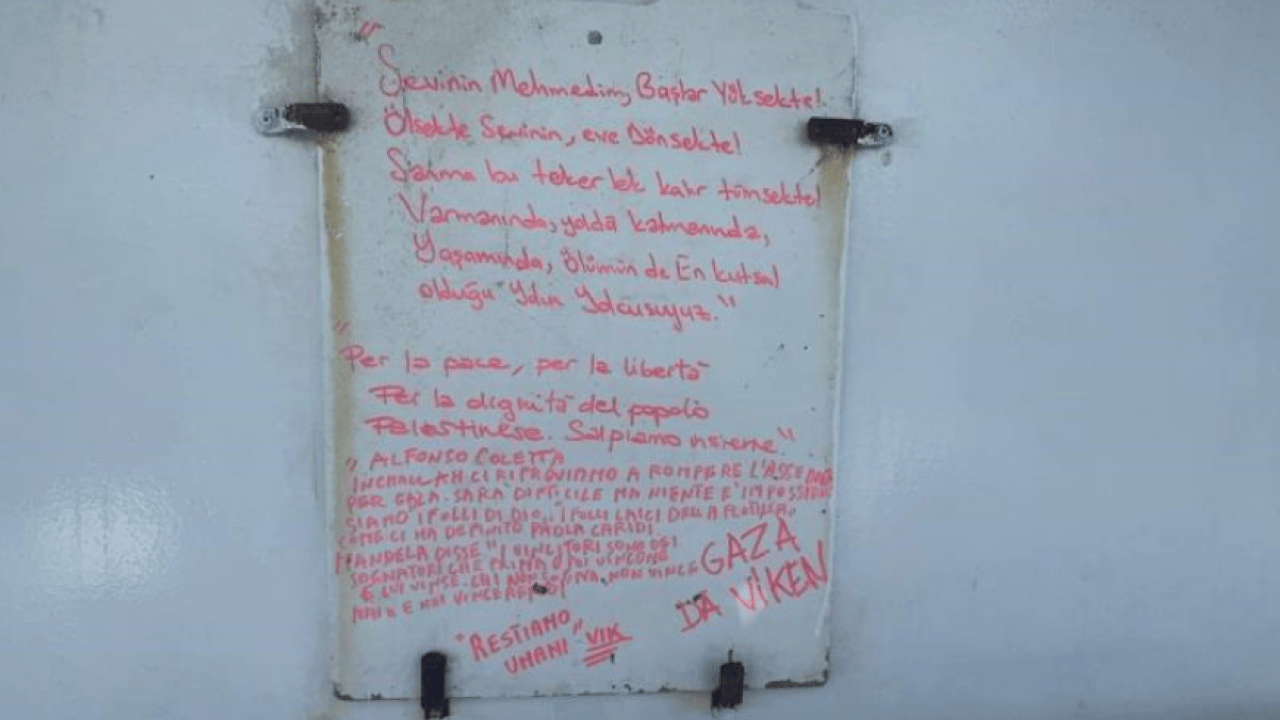 "Sevinin Mehmedim, Başlar Yüksekte!
Ölsekte Sevinin, eve Dönsekte!
Sanma bu tekerlek kalır tümsekte!
Varmanında, yolda kalmanında,
Yaşamında, ölümün de En kutsal
olduğu Yolun Yolcusuyuz."
"Per la pace, per la libertà
Per la dignità del popolo
Palestinese. Salpiamo insieme"
" ALFONSO COLETTA
INCHALLAH CI RIPROVIAMO A ROMPERE L'ASSEDIO
PER GAZA. SARA' DIFFICILE MA NIENTE E' IMPOSSIBILE
SIAMO "I FOLLI DI DIO", I FOLLI LAICI DELLA FLOTILLA,
COME CI HA DEFINITO PAOLA CARIDI
MANDELA DISSE "I VINCITORI SONO DEI
SOGNATORI CHE PRIMA O POI VINCONO
E LUI VINSE. CHI NON SOGNA, NON VINCE
MAI E NOI VINCEREMO!
GAZA
DA VIKEN
"RESTIAMO
UMANI" VIK